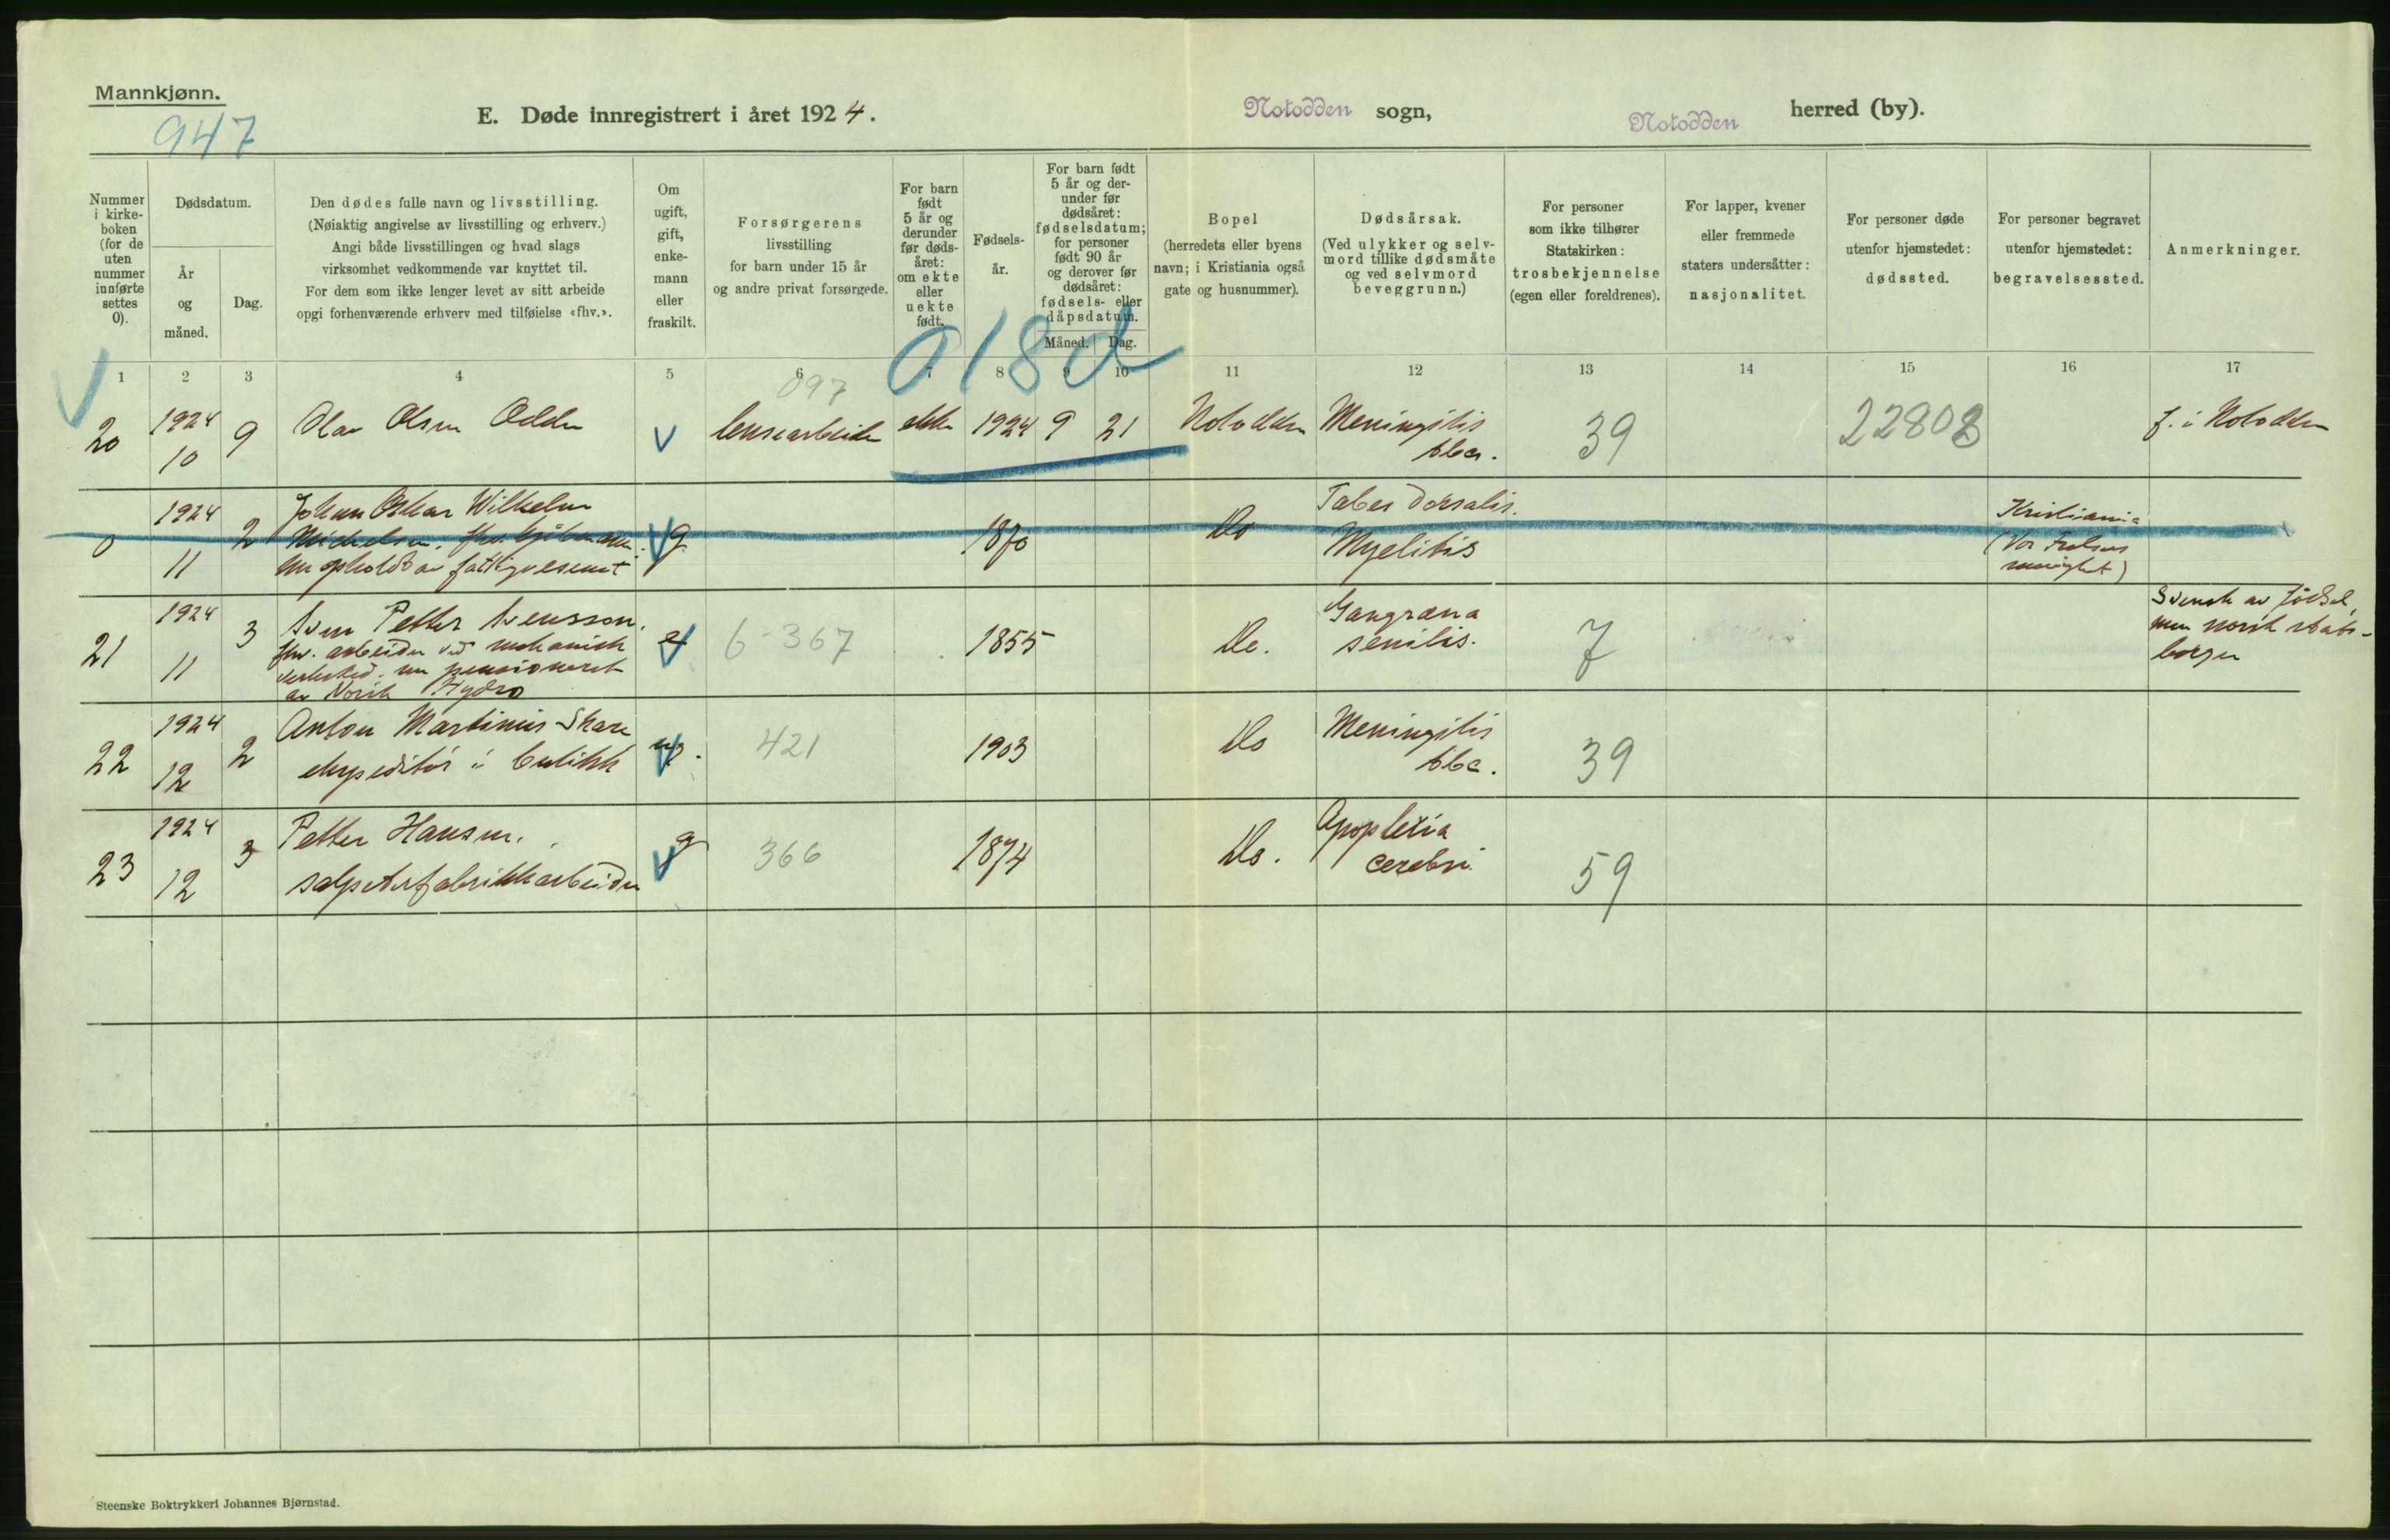 Mannkjønn.
947
E. Døde innregistrert i året 1924.
Notodden sogn,
Notodden herred (by).
Nummer i kirke- boken (for de uten nummer innførte settes 0).
Dødsdatum.
År og måned.
Dag.
Den dødes fulle navn og livsstilling.
(Nøiaktig angivelse av livsstilling og erhverv.)
Angi både livsstillingen og hvad slags
virksomhet vedkommende var knyttet til.
For dem som ikke lenger levet av sitt arbeide
opgi forhenværende erhverv med tilføielse «fhv.».
Om ugift, gift, enke- mann eller fraskilt.
Forsørgerens
livsstilling
for barn under 15 år
og andre privat forsørgede.
For barn født 5 år og derunder før døds- året: om ekte eller uekte født.
Fødsels- år.
For barn født 5 år og der- under før dødsåret: fødselsdatum; for personer født 90 år og derover før dødsåret: fødsels- eller dåpsdatum.
Måned. Dag.
Bopel
(herredets eller byens
navn; i Kristiania også
gate og husnummer).
Dødsårsak.
(Ved ulykker og selv-
mord tillike dødsmåte
og ved selvmord
beveggrunn.)
For personer
som ikke tilhører
Statskirken:
trosbekjennelse
(egen eller foreldrenes).
For lapper, kvener
eller fremmede
staters undersåtter:
nasjonalitet.
For personer døde
utenfor hjemstedet:
dødssted.
For personer begravet
utenfor hjemstedet:
begravelsessted.
Anmerkninger.
018d
1 2 3 4 5 6 7 8 9 10 11 12 13 14 15 16 17
097
20 1924 10 9 Olav Olsen Odden lensearbeider ekte 1924 9 21 Notodden Meningitis tbc. 39 22802 f. i Notodden
0 1924 11 2 Johan Oskar Wilhelm
Michelsen, fhv. kjøbmann,
nu opholdt av fattigvesenet g 1870 Do Tabes dorsalis.
Myelitis
Kristiania
(Vor Frelsers
menighet)
21 1924 11 3 Sven Petter Svensson.
fhv. arbeider ved mekanisk
verksted, nu pensioneret
av Norsk Hydro
e 6-367 1855 Do. Gangræna
senilis. 7
Svensk av fødsel,
men norsk stats-
borger
22 1924 12 2 Anton Martinius Skare
ekspeditør i butikk
ug. 421 1903 Do Meningitis
tbc. 39
23 1924 12 3 Petter Hansen.
salpeterfabrikkarbeider
g 366 1874 Do. Apoplexia
cerebri. 59
Steenske Boktrykkeri Johannes Bjørnstad.